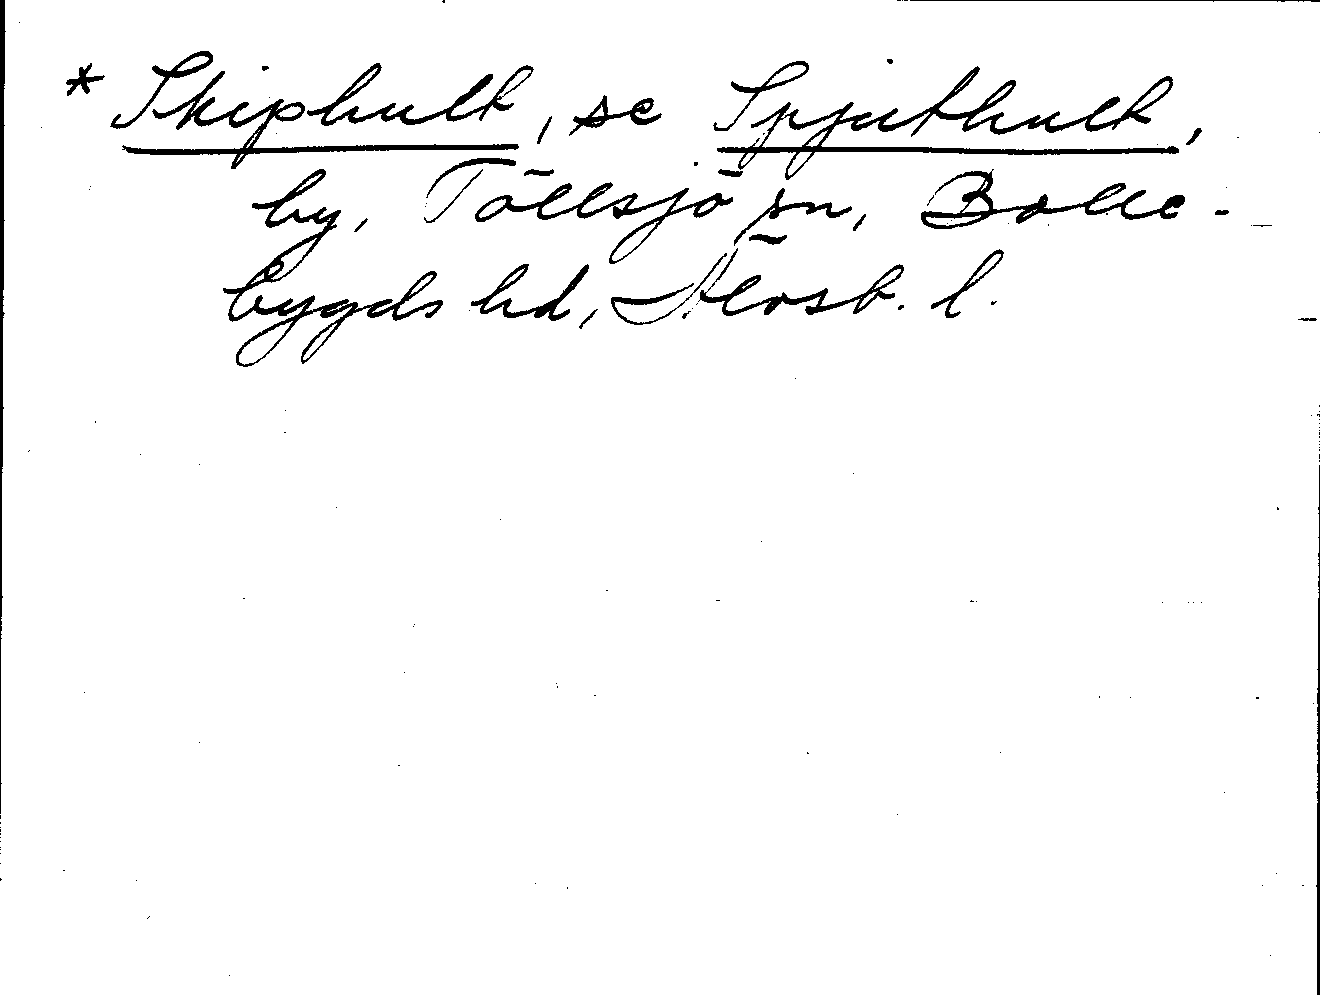 * Skiphult, se Spjuthult,
by, Töllsjö sn, Bolle-
bygds hd, Älvsb. l.